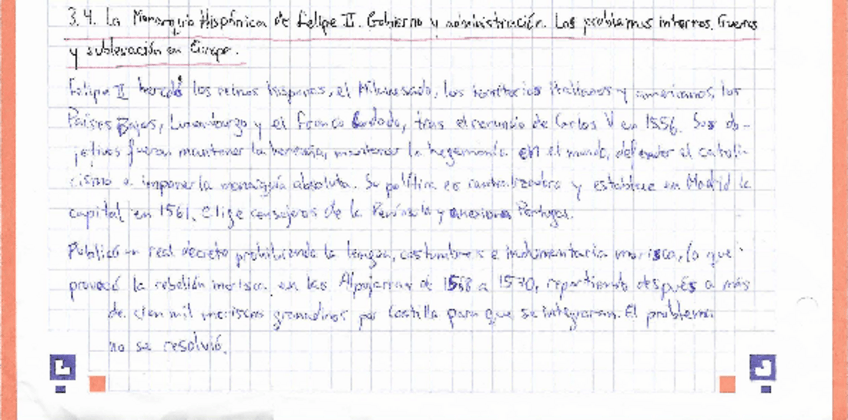 3.4. La Monarquía Hispánica de Felipe II. Gobierno y administración. Los problemas internos. Guerras
y sublevación en Europa.
Felipe II heredó los reinos hispanos, el Milanesado, los territorios italianos y americanos, los
Países Bajos, Luxemburgo y el Franco Condado, tras el renuncio de Carlos V en 1556. Sus ob-
jetivos fueron mantener la herencia, mantener la hegemonía en el mundo, defender el catoli-
cismo e imponer la monarquía absoluta. Su política es centralizadora y establece en Madrid la
capital en 1561. Elige consejeros de la Península y anexiona Portugal.
Publicó un real decreto prohibiendo la lengua, costumbres e indumentaria morisca, lo que
provocó la rebelión morisca en las Alpujarras de 1568 a 1570, repartiendo después a más
de cien mil moriscos granadinos por Castilla para que se integraran. El problema
no se resolvió.